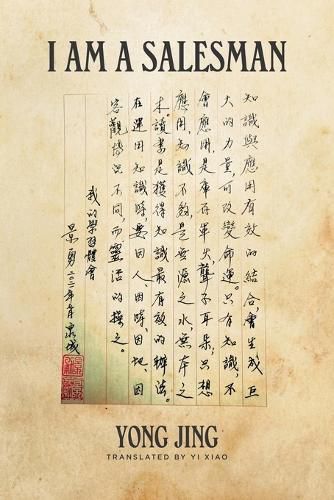 I AM A SALESMAN
知識與應用有效的結合，會生成巨
大的力量，可改變命運。只有知識，不
會應用，是庫存軍火，聾子耳朵，只想
應用，知識不夠，是無源之水，無本之
木。讀書是獲得知識最有效的辦法。
在運用知識時要因人、因時、因地、因
客觀情況不同，而靈活的操之。
我的學習體會
景勇 泉城
YONG JING
TRANSLATED BY YI XIAO